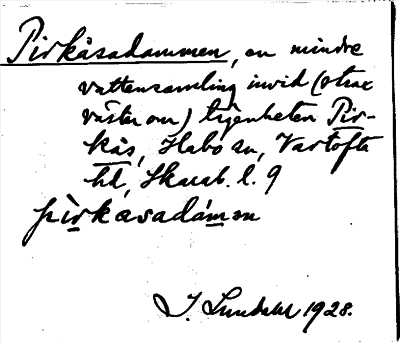 Pirkåsadammen, en mindre
vattensamling invid (strax
väster om) lägenheten Pir-
kås, Habo sn, Vartofta
hd, Skarab. l. 9
pìrkasadámen
I. Lundahl 1928.